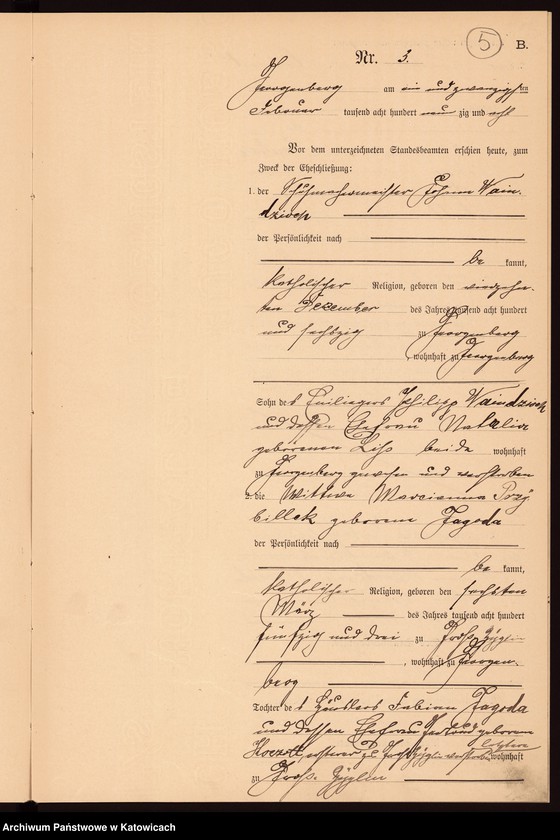 5
B.
Nr. 3.
Georgenberg am ein und zwanzigsten
Februar tausend acht hundert neun zig und acht
Vor dem unterzeichneten Standesbeamten erschien heute, zum
Zweck der Eheschließung:
1. der Schuhmachermeister Johann Wain-
dzioch
der Persönlichkeit nach
be kannt,
katholischer Religion, geboren den vierzehn-
ten Dezember des Jahres tausend acht hundert
und sechszig zu Georgenberg
, wohnhaft zu Georgenberg
Sohn des Einliegers Philipp Waindzioch
und dessen Ehefrau Natalia
geborenen beide wohnhaft
zu Georgenberg gewesen und verstorben
2. die Wittwe Marcianna Przy
billek geborene Jagoda
der Persönlichkeit nach
be kannt,
katholischer Religion, geboren den sechsten
März des Jahres tausend acht hundert
fünfzig und drei zu Groß Zyglin
, wohnhaft zu Georgen-
berg
Tochter des Häuslers Fabian Jagoda
und dessen Ehefrau geborene
ersterer zu Groß Zyglin verstorben, letztere wohnhaft
zu Groß Zyglin
Archiwum Państwowe w Katowicach